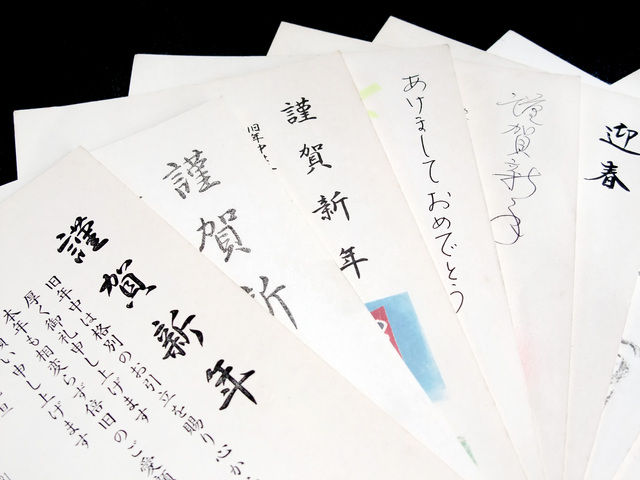 謹賀新年
旧年中は格別のお引立を賜り心か
厚く御礼申し上げます
本年も相変らず倍旧のご愛顧
願い申し上げます
謹賀新
謹賀新年
旧年中は
あけまして おめでとう
謹賀新年
迎春